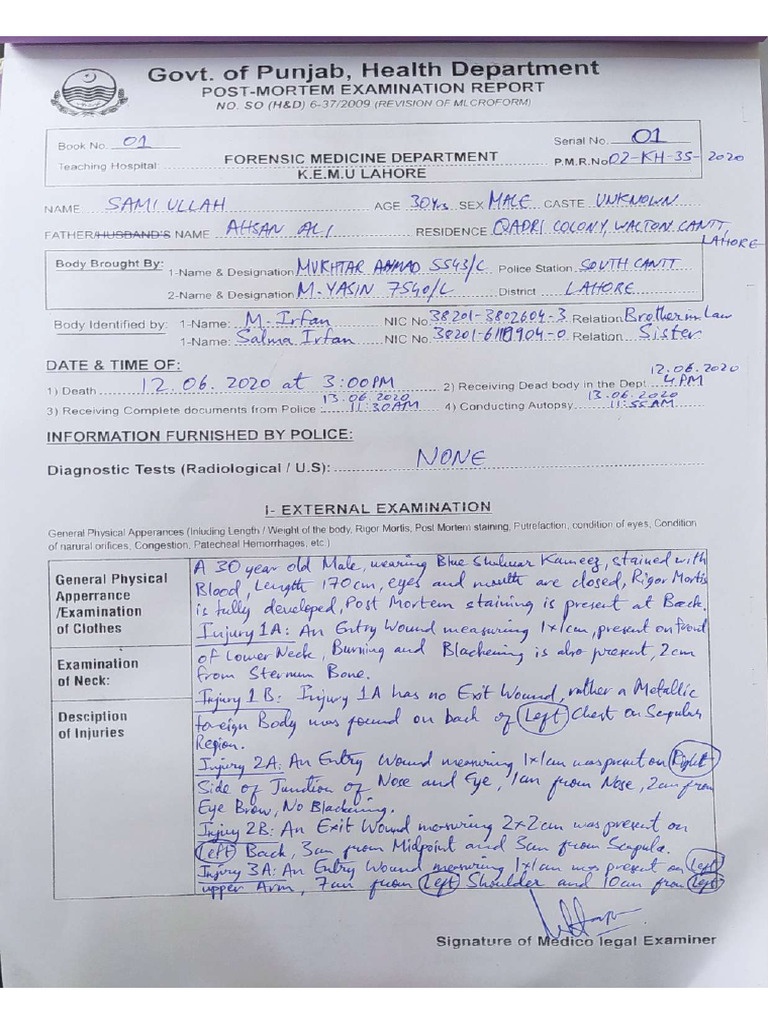 Govt. of Punjab, Health Department
POST-MORTEM EXAMINATION REPORT
NO. SO (H&D) 6-37/2009 (REVISION OF MLCROFORM)
Book No. 01 Serial No. 01
Teaching Hospital: FORENSIC MEDICINE DEPARTMENT P.M.R.No 02-KH-35-2020
K.E.M.U LAHORE
NAME SAMI ULLAH AGE 30yrs SEX MALE CASTE UNKNOWN
FATHER/HUSBAND'S NAME AHSAN ALI RESIDENCE QADRI COLONY, WALTON CANTT,
LAHORE
Body Brought By: 1-Name & Designation MUKHTAR AHMAD 5543/C Police Station SOUTH CANTT
2-Name & Designation M. YASIN 7540/C District LAHORE
Body Identified by: 1-Name: M. Irfan NIC No. 38201-3802604-3 Relation Brother in Law
1-Name: Salma Irfan NIC No. Relation Sister
DATE & TIME OF:
1) Death 12.06.2020 at 3:00PM 2) Receiving Dead body in the Dept. 12.06.2020 4PM
3) Receiving Complete documents from Police 13.06.2020 11:30AM 4) Conducting Autopsy 13.06.2020 11:55AM
INFORMATION FURNISHED BY POLICE:
Diagnostic Tests (Radiological / U.S): NONE
I- EXTERNAL EXAMINATION
General Physical Apperances (Inluding Length / Weight of the body, Rigor Mortis, Post Mortem staining, Putrefaction, condition of eyes, Condition
of narural orifices, Congestion, Patecheal Hemorrhages, etc.)
General Physical
Apperrance
/Examination
of Clothes
A 30 year old Male, wearing Blue Shalwar Kameez, stained with
Blood, Length 170cm, eyes and mouth are closed, Rigor Mortis
is fully developed, Post Mortem staining is present at Back.
Injury 1A: An Entry Wound measuring 1x1cm, present on front
Examination
of Neck:
of Lower Neck, Burning and Blackening is also present, 2cm
from Sternum Bone.
Desciption
of Injuries
Injury 1B: Injury 1A has no Exit Wound, rather a Metallic
foreign Body was found on back of Left Chest on Scapular
Region.
Injury 2A: An Entry Wound measuring 1x1cm was present on Right
Side of Junction of Nose and Eye, 1cm from Nose, 2cm from
Eye Brow, No Blackening.
Injury 2B: An Exit Wound measuring 2x2cm was present on
Left Back, 3cm from Midpoint and 3cm from Scapula.
Injury 3A: An Entry Wound measuring 1x1cm was present on Left
upper Arm, 7cm from Left Shoulder and 10cm from Left
Signature of Medico legal Examiner